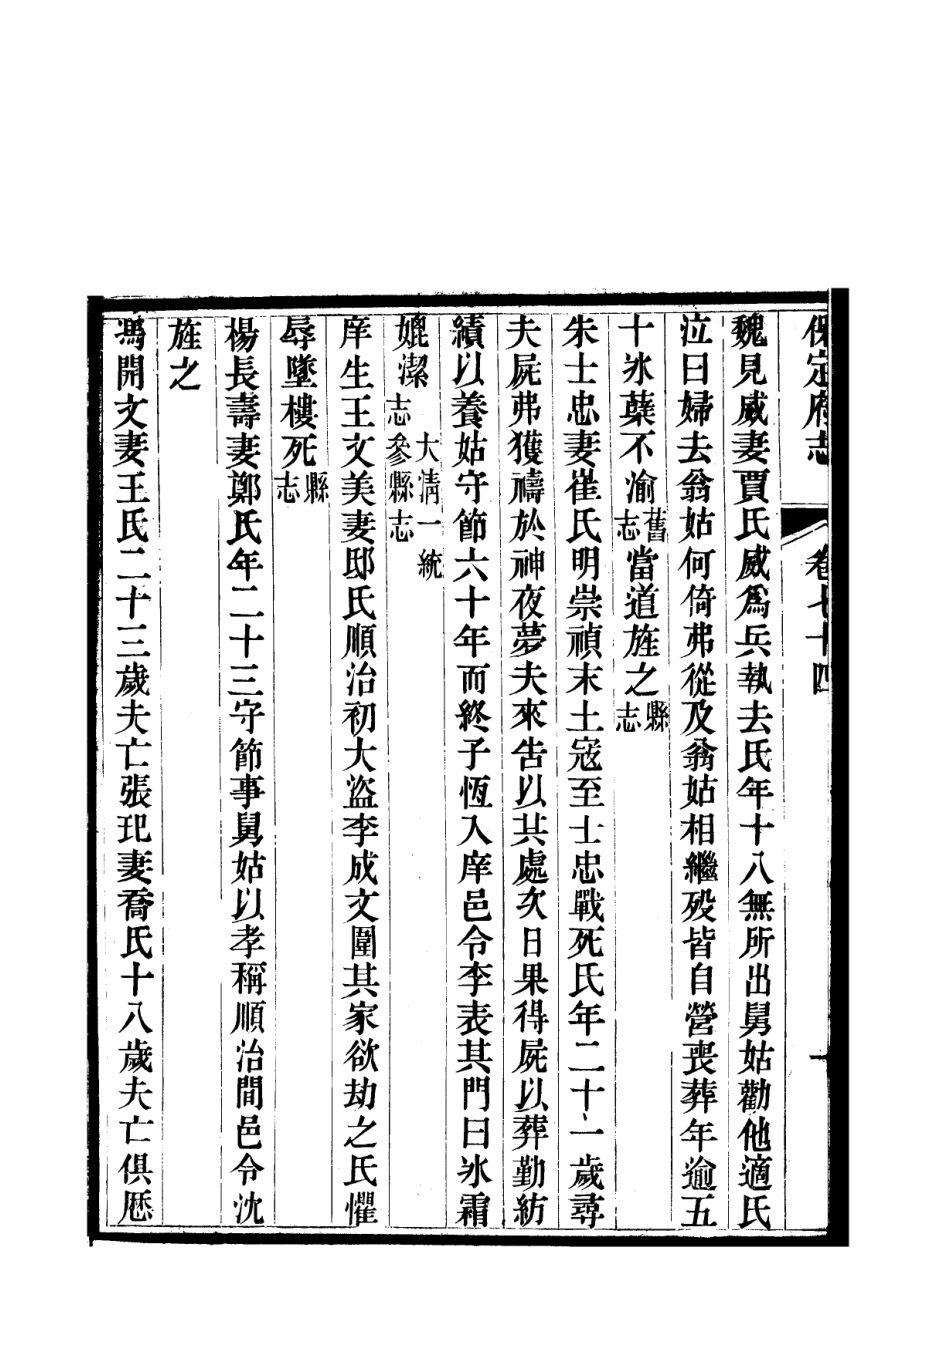 保定府志 卷七十四 十
魏見威妻賈氏威爲兵執去氏年十八無所出舅姑勸他適氏
泣曰婦去翁姑何倚弗從及翁姑相繼殁皆自營喪葬年逾五
十氷蘖不渝舊志當道旌之縣志
朱士忠妻崔氏明崇禎末土寇至士忠戰死氏年二十一歲尋
夫屍弗獲禱於神夜夢夫來告以其處次日果得屍以葬勤紡
績以養姑守節六十年而終子恆入庠邑令李表其門曰氷霜
媲潔大淸一統志參縣志
庠生王文美妻邸氏順治初大盜李成文圍其家欲劫之氏懼
辱墜樓死縣志
楊長壽妻鄭氏年二十三守節事舅姑以孝稱順治間邑令沈
旌之
馮開文妻王氏二十三歲夫亡張玘妻喬氏十八歲夫亡俱歷